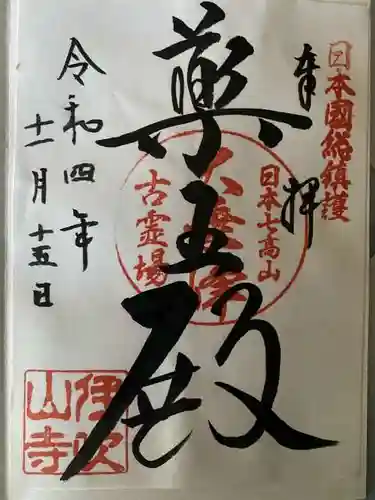 日本國総鎮護
奉拝
日本七高山
薬王殿
古霊場
令和四年
十一月十五日
伊吹
山寺